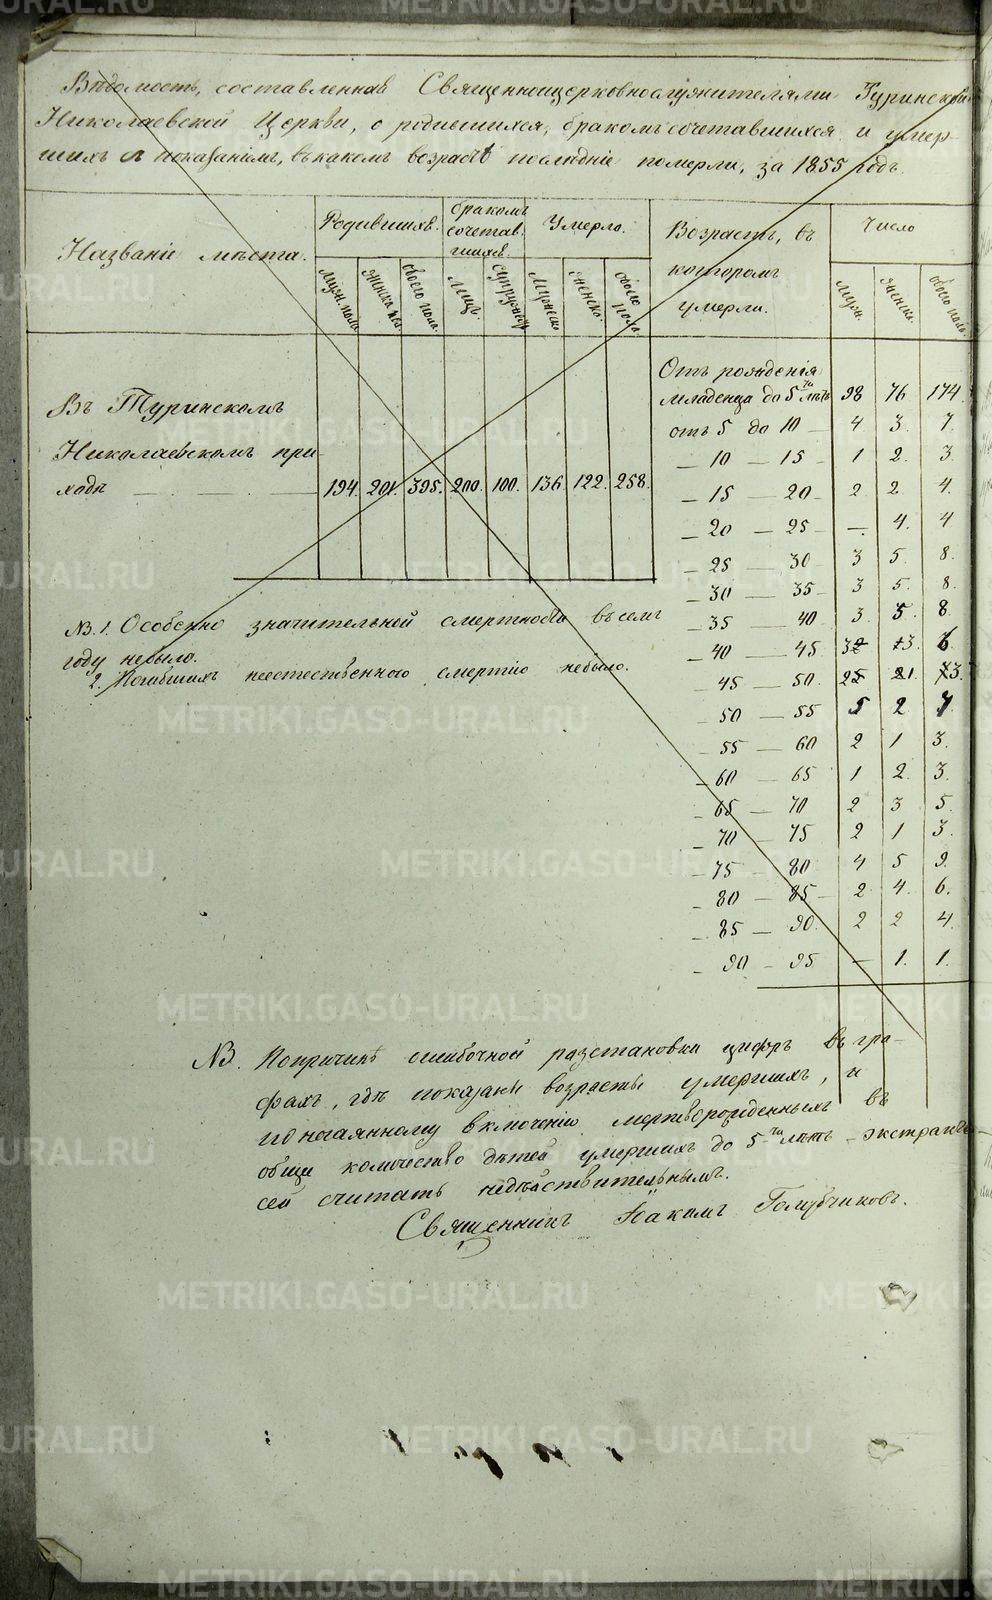 Вѣдомость, составленная Священноцерковнослужителями Туринской
Николаевской Церкви, о родившихся, бракомъ сочетавшихся и умер-
шихъ съ показаніемъ, въ какомъ возрастѣ послѣдніе померли, за 1855 годъ.
Названіе мѣста.
Родившихъ.
бракомъ
сочетав
шихъ.
Умерло.
Возрастъ, въ
которомъ
умерли.
Число
мужс. пола
Женска пол.
обоего пола.
Лицъ.
супружеств
Мужеска
женска.
обоего пола.
Муж.
женска.
обоего пола.
Въ Туринскомъ
Николаевскомъ при-
ходѣ — — — — 194. 201. 395. 200. 100. 136. 122. 258.
Отъ рожденія
младенца до 5ти лѣтъ 98 76 174
отъ 5 до 10 — 4 3. 7.
— 10 — 15 — 1 2. 3.
— 15 — 20 — 2 2. 4.
— 20 — 25 — —. 4. 4
— 25 — 30 3 5. 8.
— 30 — 35 3 5. 8.
— 35 — 40 3. 5. 8.
— 40 — 45 3 3. 6.
— 45 — 50. 2 1. 3.
— 50 — 55 5 2 7
— 55 — 60 2 1 3.
— 60 — 65 1 2. 3.
— 65 — 70 2 3 5.
— 70 — 75 2 1 3.
— 75 — 80 4 5 9.
— 80 — 85 — 2 4. 6.
— 85 — 90. 2 2 4.
— 90 — 95 — 1. 1.
NB. 1. Особенно значительной смертности въ семъ
году небыло.
2. Погибшихъ неестественною смертію небыло.
NB. Попричинѣ ошибочной разстановки цифръ въ гра-
фахъ, гдѣ показаны возрасты умершихъ, и
по нечаянному включенію мертворожденныхъ въ
общее количество дѣтей умершихъ до 5ти лѣтъ —
сей считать недѣйствительнымъ.
Священникъ Іаковъ Голубчиковъ.
METRIKI.GASO-URAL.RU